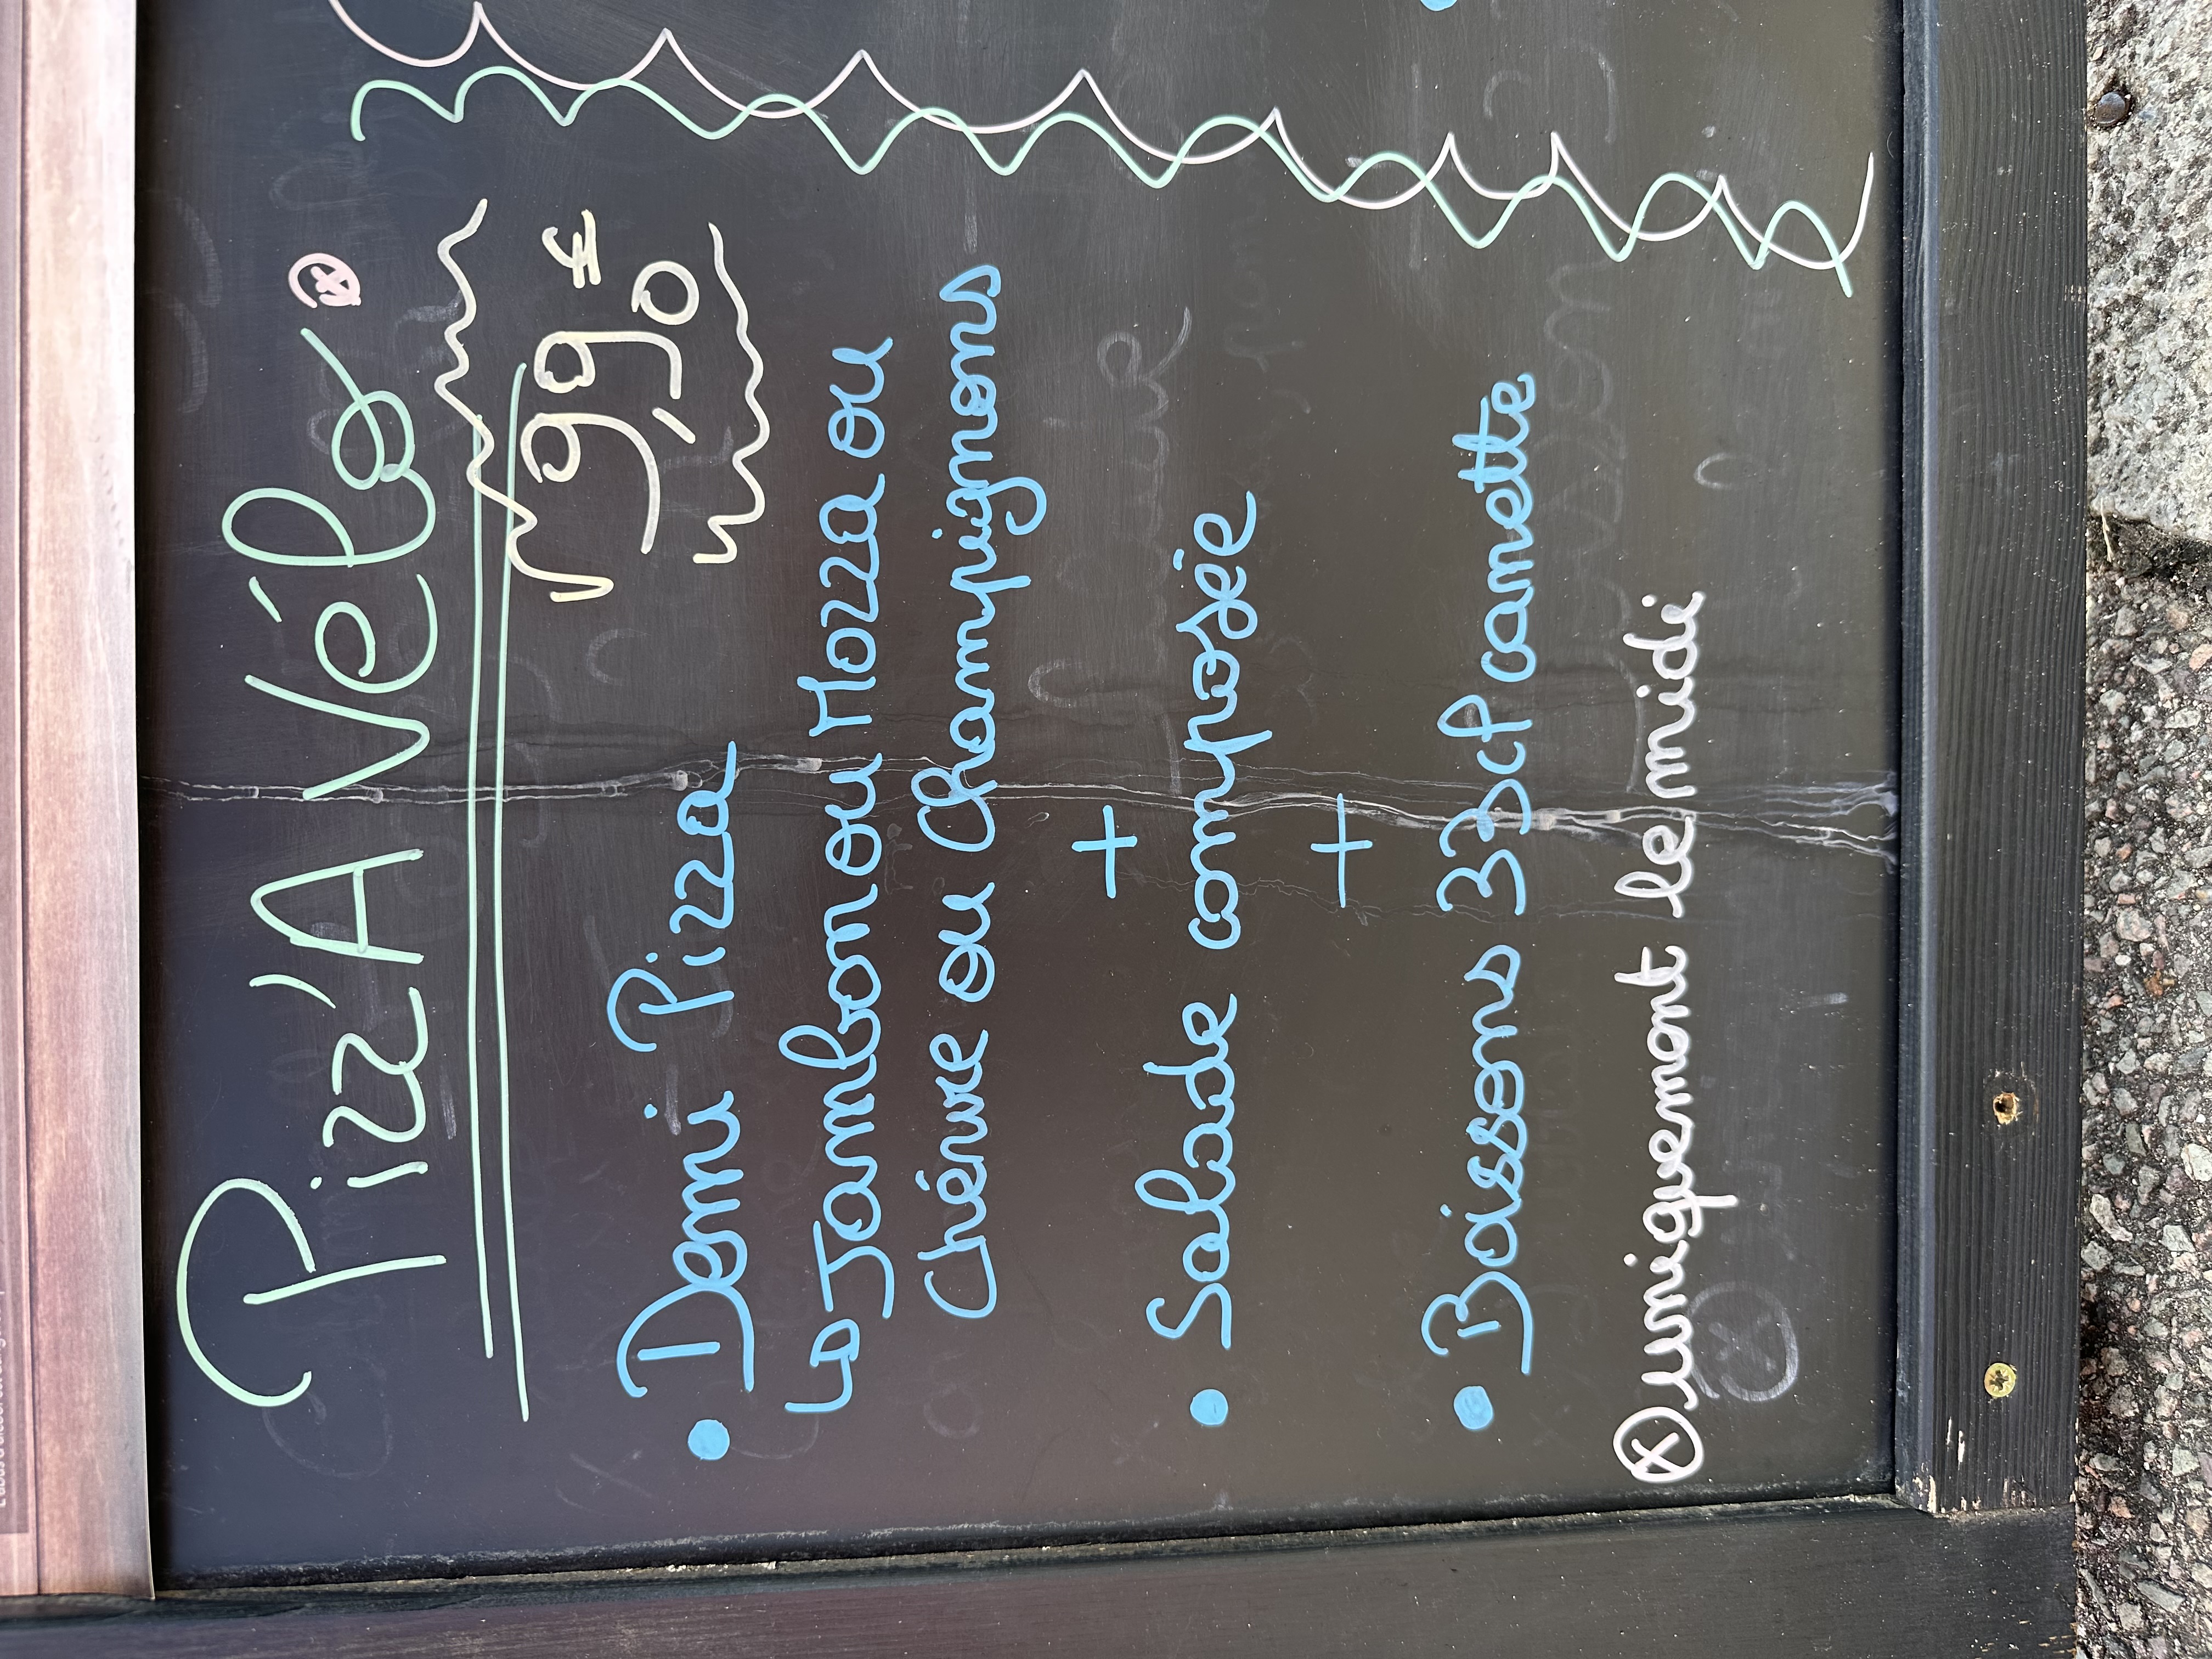 Pizz'A Vélo ⓧ
9,90 €
• Demi Pizza
↳ Jambon ou Mozza ou
Chévre ou Champignons
+
• Salade composée
+
• Boissons 33cl canette
ⓧ uniquement le midi